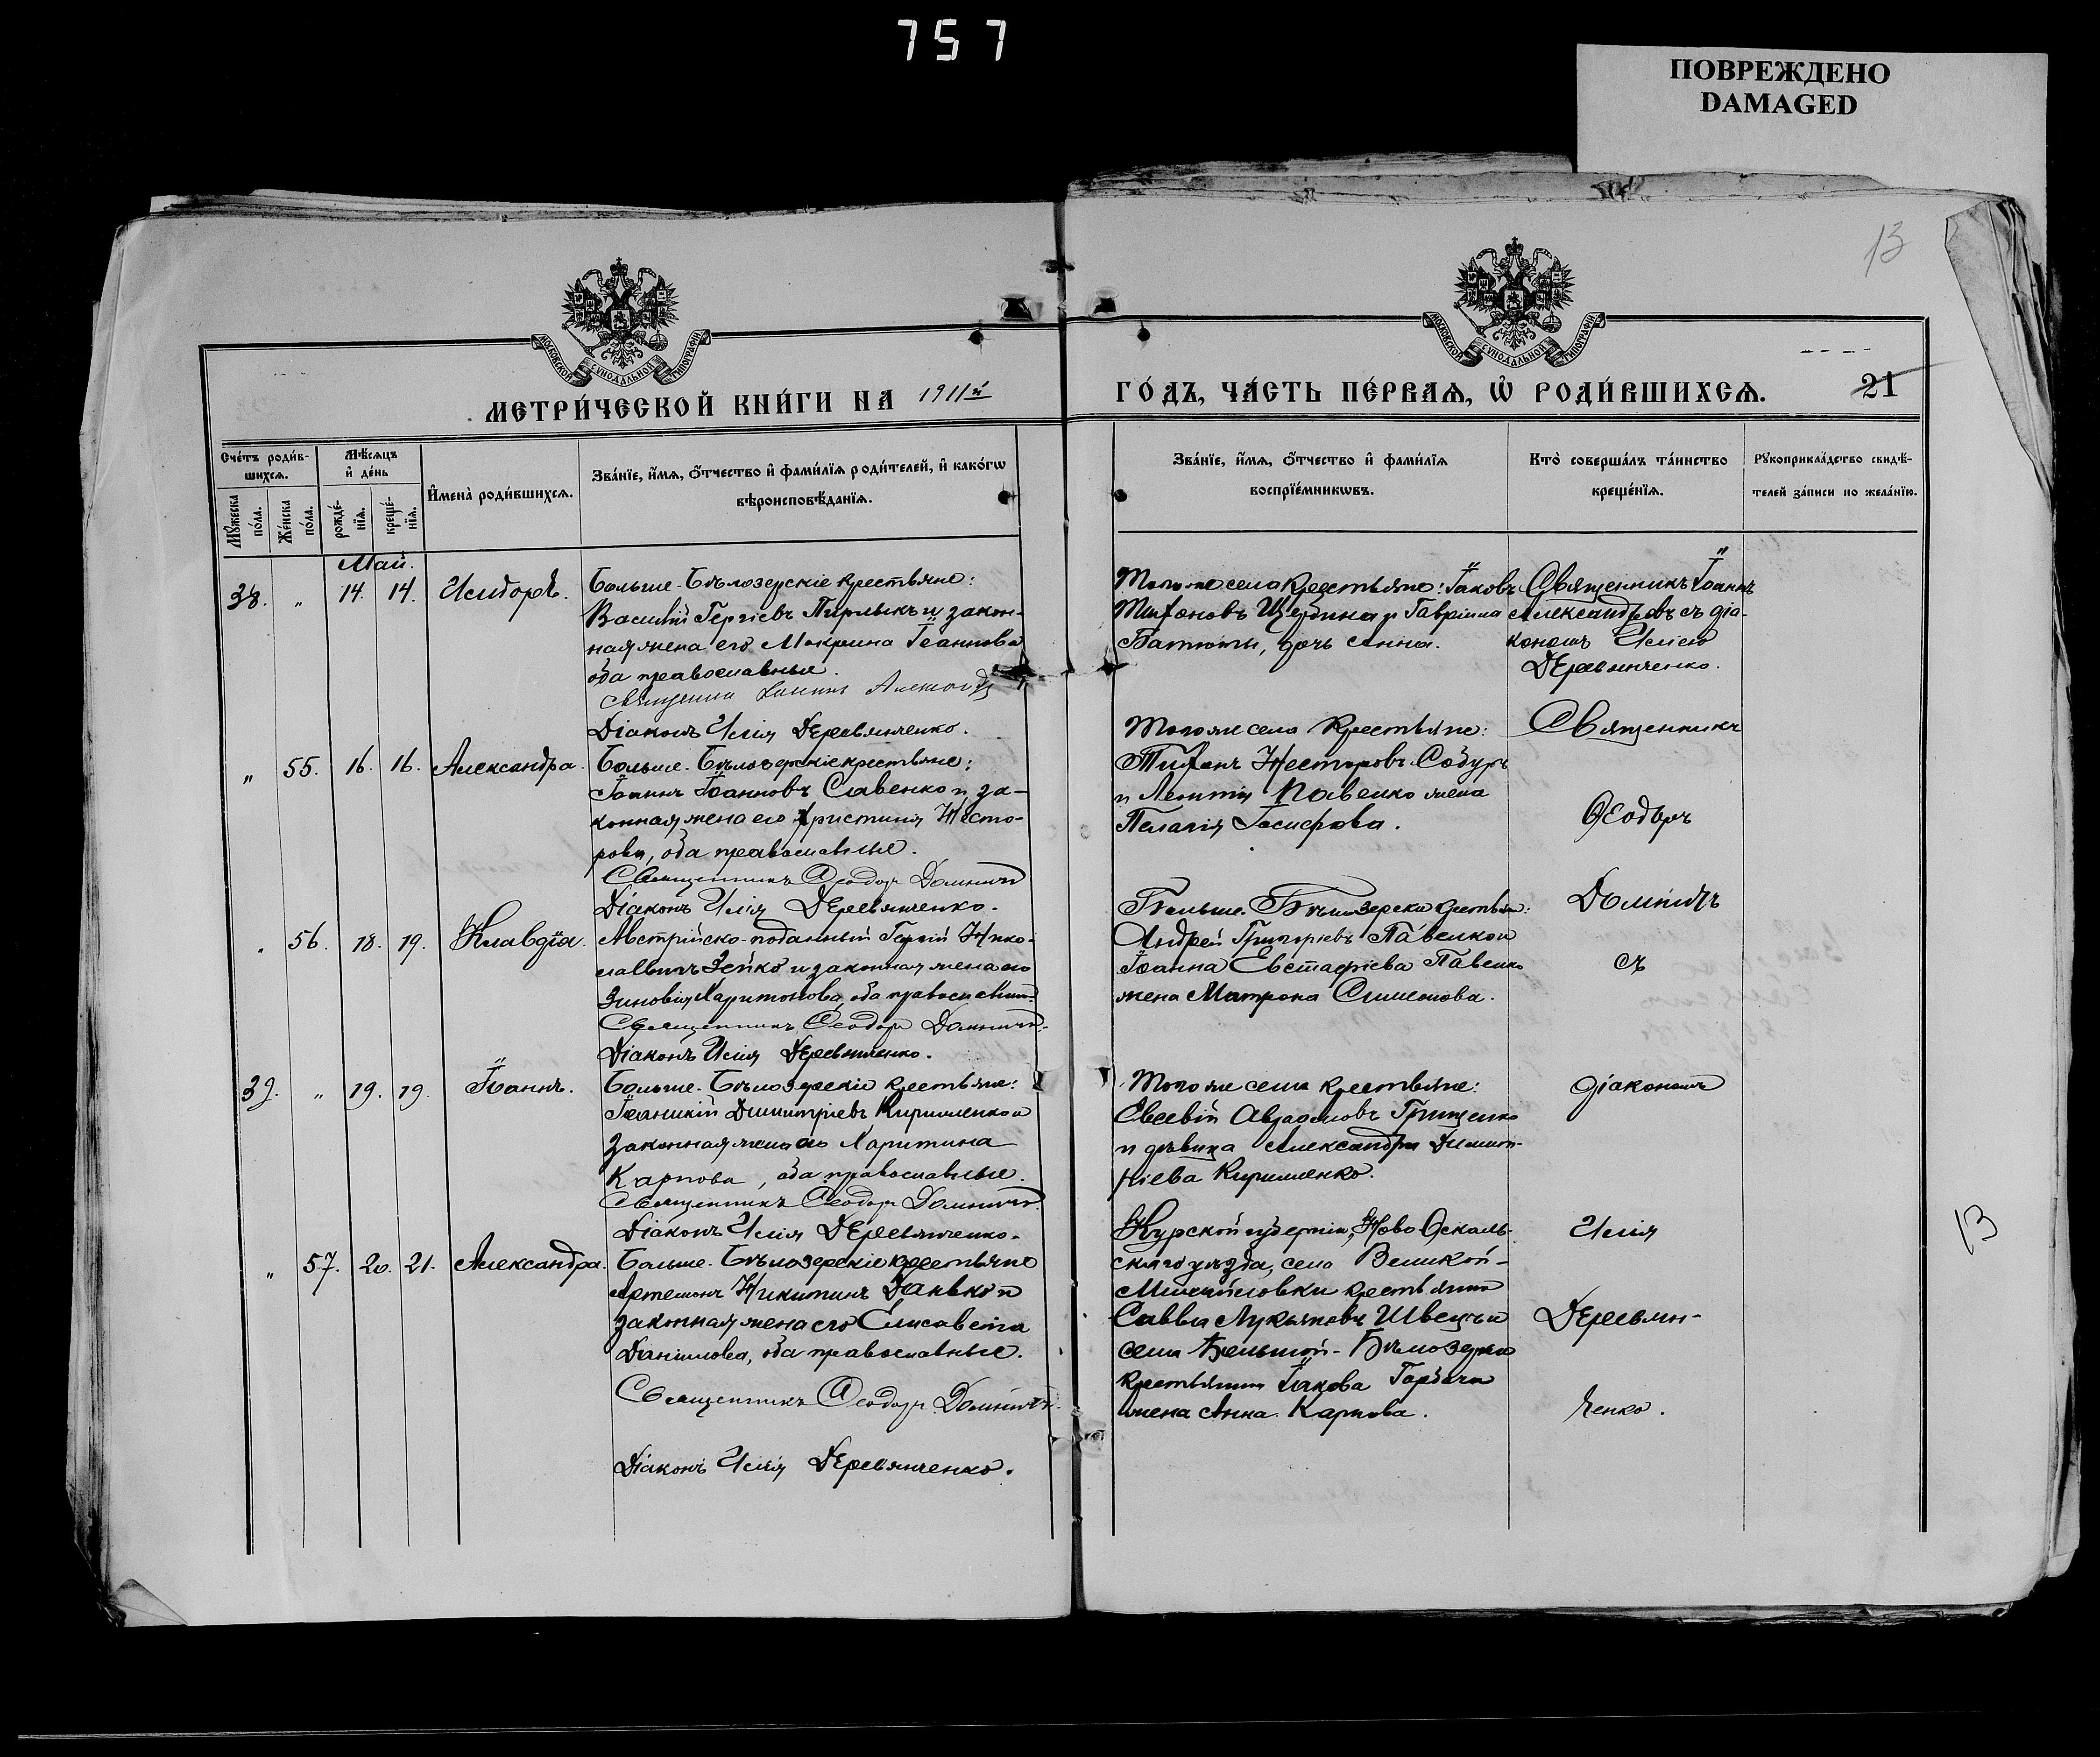 757
ПОВРЕЖДЕНО
DAMAGED
13
МОСКОВСКОЙ СѴНОДАЛЬНОЙ ТИПОГРАФІИ
МОСКОВСКОЙ СѴНОДАЛЬНОЙ ТИПОГРАФІИ
МЕТРИ́ЧЕСКОЙ КНИ́ГИ НА 1911й
ГО́ДЪ, ЧА́СТЬ ПЕ́РВАѦ, Ѡ҆ РОДИ́ВШИХСѦ.
21
Сче́тъ роди́в-
шихсѧ.
Мѣ́сѧцъ
и҆ де́нь
И҆мена̀ роди́вшихсѧ.
Зва́нїе, и҆́мѧ, ѻ҆́тчество и҆ фами́лїѧ роди́телей, и҆ како́гѡ
вѣроисповѣ́данїѧ.
Мꙋ́жеска
по́ла.
Же́нска
по́ла.
рожде́-
нїѧ.
креще́-
нїѧ.
Зва́нїе, и҆́мѧ, ѻ҆́тчество и҆ фами́лїѧ
воспрїе́мникѡвъ.
Кто̀ соверша́лъ та́инство
креще́нїѧ.
Рꙋкоприкла́дство свидѣ́-
телей за́писи по жела́нїю.
Май.
38. " 14. 14. Исидоръ.
Больше-Бѣлозерскіе крестьяне:
Василій Гергіевъ Пирлыкъ и закон-
ная жена его Макрина Іоаннова
оба православныя.
Священни Іоаннъ
Діаконъ Илія Деревянченко.
Того же села крестьяне: Іаковъ
Тифоновъ Щербина и Гавріила
Батюты, дочь Анна.
Священникъ Іоаннъ
Александровъ съ діа-
кономъ Иліею
Деревянченко.
" 55. 16. 16. Александра.
Больше-Бѣлозерскіе крестьяне:
Іоаннъ Іоанновъ Славенко и за-
конная жена его Христина Несто-
рова, оба православные.
Священникъ Ѳеодоръ Домничъ
Діаконъ Илія Деревянченко.
Того же села крестьяне:
Тифонъ Несторовъ Собуръ
и Леонтія Павенко жена
Пелагія Іосифова.
Священникъ
Ѳеодоръ
Домнічъ
съ
діакономъ
Илія
Деревян-
ченко.
" 56. 18. 19. Клавдія.
Австрійско-поданный Гергій Нико-
лаевичъ Зейко и законная жена его
Зиновія Харитонова, оба православн.
Священникъ Ѳеодоръ Домничъ.
Діаконъ Илія Деревянченко.
Больше-Бѣлозерски крестьян:
Андрей Григорьевъ Павенко и
Іоанна Евстафіева Павенко
жена Матрона Симеонова.
39. " 19. 19. Іоаннъ.
Больше-Бѣлозерскіе крестьяне:
Іоанникій Димитріевъ Кириленко и
законная жена его Харитина
Карпова, оба православные.
Священникъ Ѳеодоръ Домничъ.
Діаконъ Илія Деревянченко.
Того же села крестьяне:
Евсевій Авраамовъ Грищенко
и дѣвица Александра Димит-
ріева Кириленко.
" 57. 20. 21. Александра.
Больше-Бѣлозерскіе крестьяне
Артемонъ Никитинъ Данько и
законная жена его Елисавета
Даніилова, оба православные.
Священникъ Ѳеодоръ Домничъ.
Діаконъ Илія Деревянченко.
Курской губерніи, Ново Оскаль-
скаго уѣзда, села Великой-
Михайловки крестьянин
Савва Лукьяновъ Швецъ и
села Большой-Бѣлозерки
крестьянина Іакова Горбача
жена Анна Карпова.
13